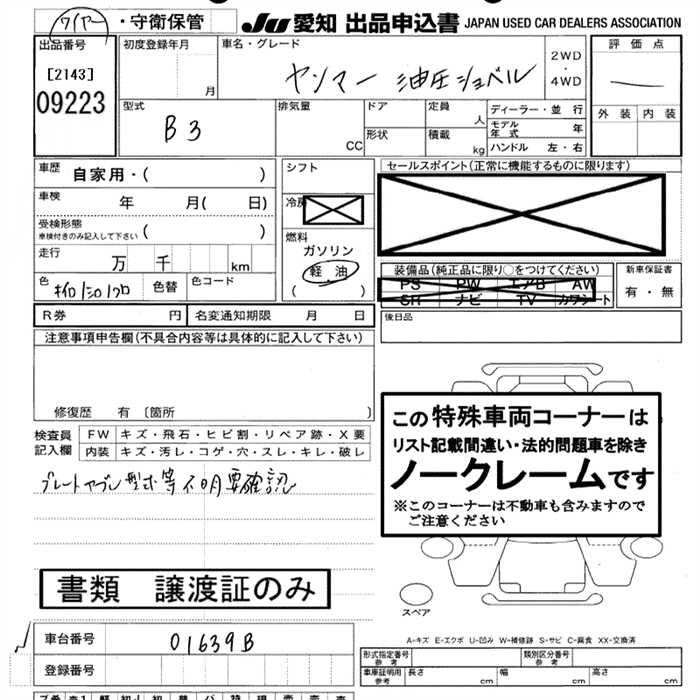 ワイヤー・守衛保管
JU 愛知 出品申込書 JAPAN USED CAR DEALERS ASSOCIATION
出品番号
[2143]
09223
初度登録年月
月
車名・グレード
ヤンマー 油圧ショベル
2WD
・
4WD
評価点
外装 内装
型式
B3
排気量
CC
ドア
形状
定員
人
積載
kg
ディーラー・並行
モデル年式 年
ハンドル 左・右
車歴 自家用・( )
車検 年 月( 日)
受検形態
車検付きのみ記入して下さい ( )
走行 万 千 km
色
色替
色コード
シフト
冷房
燃料
ガソリン
軽油
( )
セールスポイント(正常に機能するものに限ります)
装備品(純正品に限り○をつけてください)
PS PW エアB AW
SR ナビ TV カワシート
新車保証書
有・無
R券 円
名変通知期限 月 日
後日品
注意事項申告欄(不具合内容等は具体的に記入して下さい)
修復歴 有 〔箇所 〕
検査員記入欄
FW キズ・飛石・ヒビ割・リペア跡・X要
内装 キズ・汚レ・コゲ・穴・スレ・キレ・破レ
プレートヤブレ 型式等不明要確認
この特殊車両コーナーは
リスト記載間違い・法的問題車を除き
ノークレームです
※このコーナーは不動車も含みますので
ご注意ください
書類 譲渡証のみ
スペア
A-キズ E-エクボ U-凹み W-補修跡 S-サビ C-腐食 XX-交換済
車台番号 01639B
登録番号
形式指定番号
参考
類別区分番号
参考
車庫証明用
参考
長さ cm
幅 cm
高さ cm